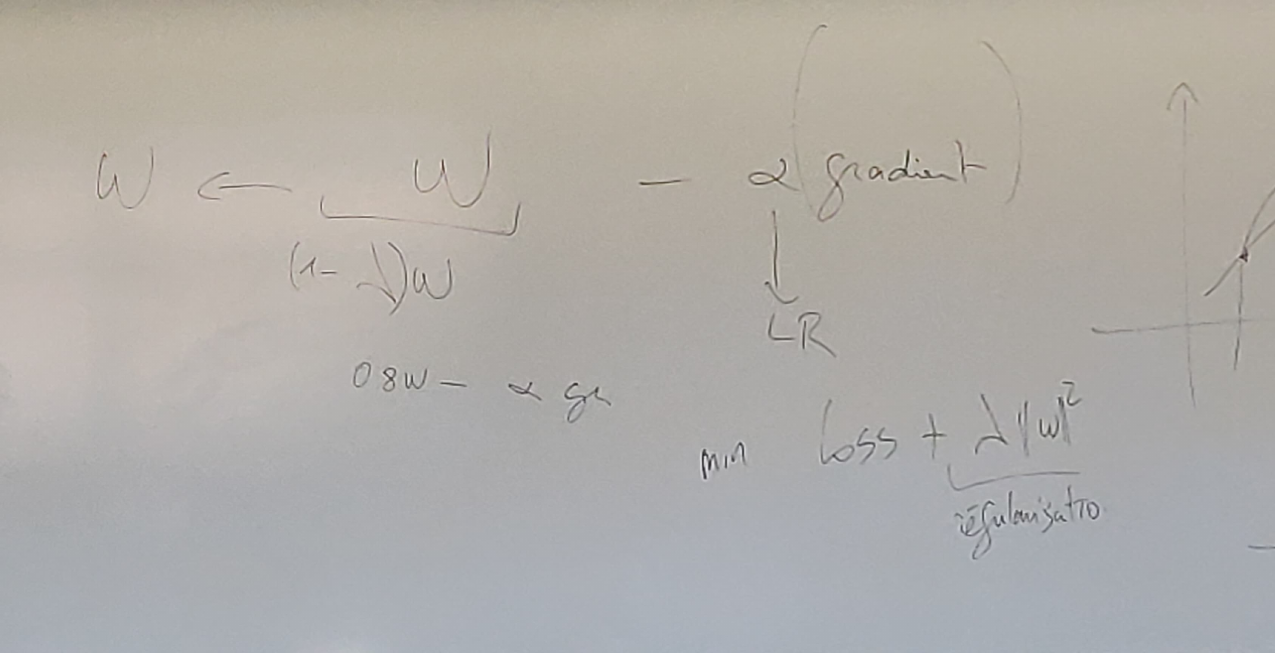 W ← W - α (gradient)
(1-λ)W
LR
0 8W - α gr
min Loss + λ||w||²
régularisatio